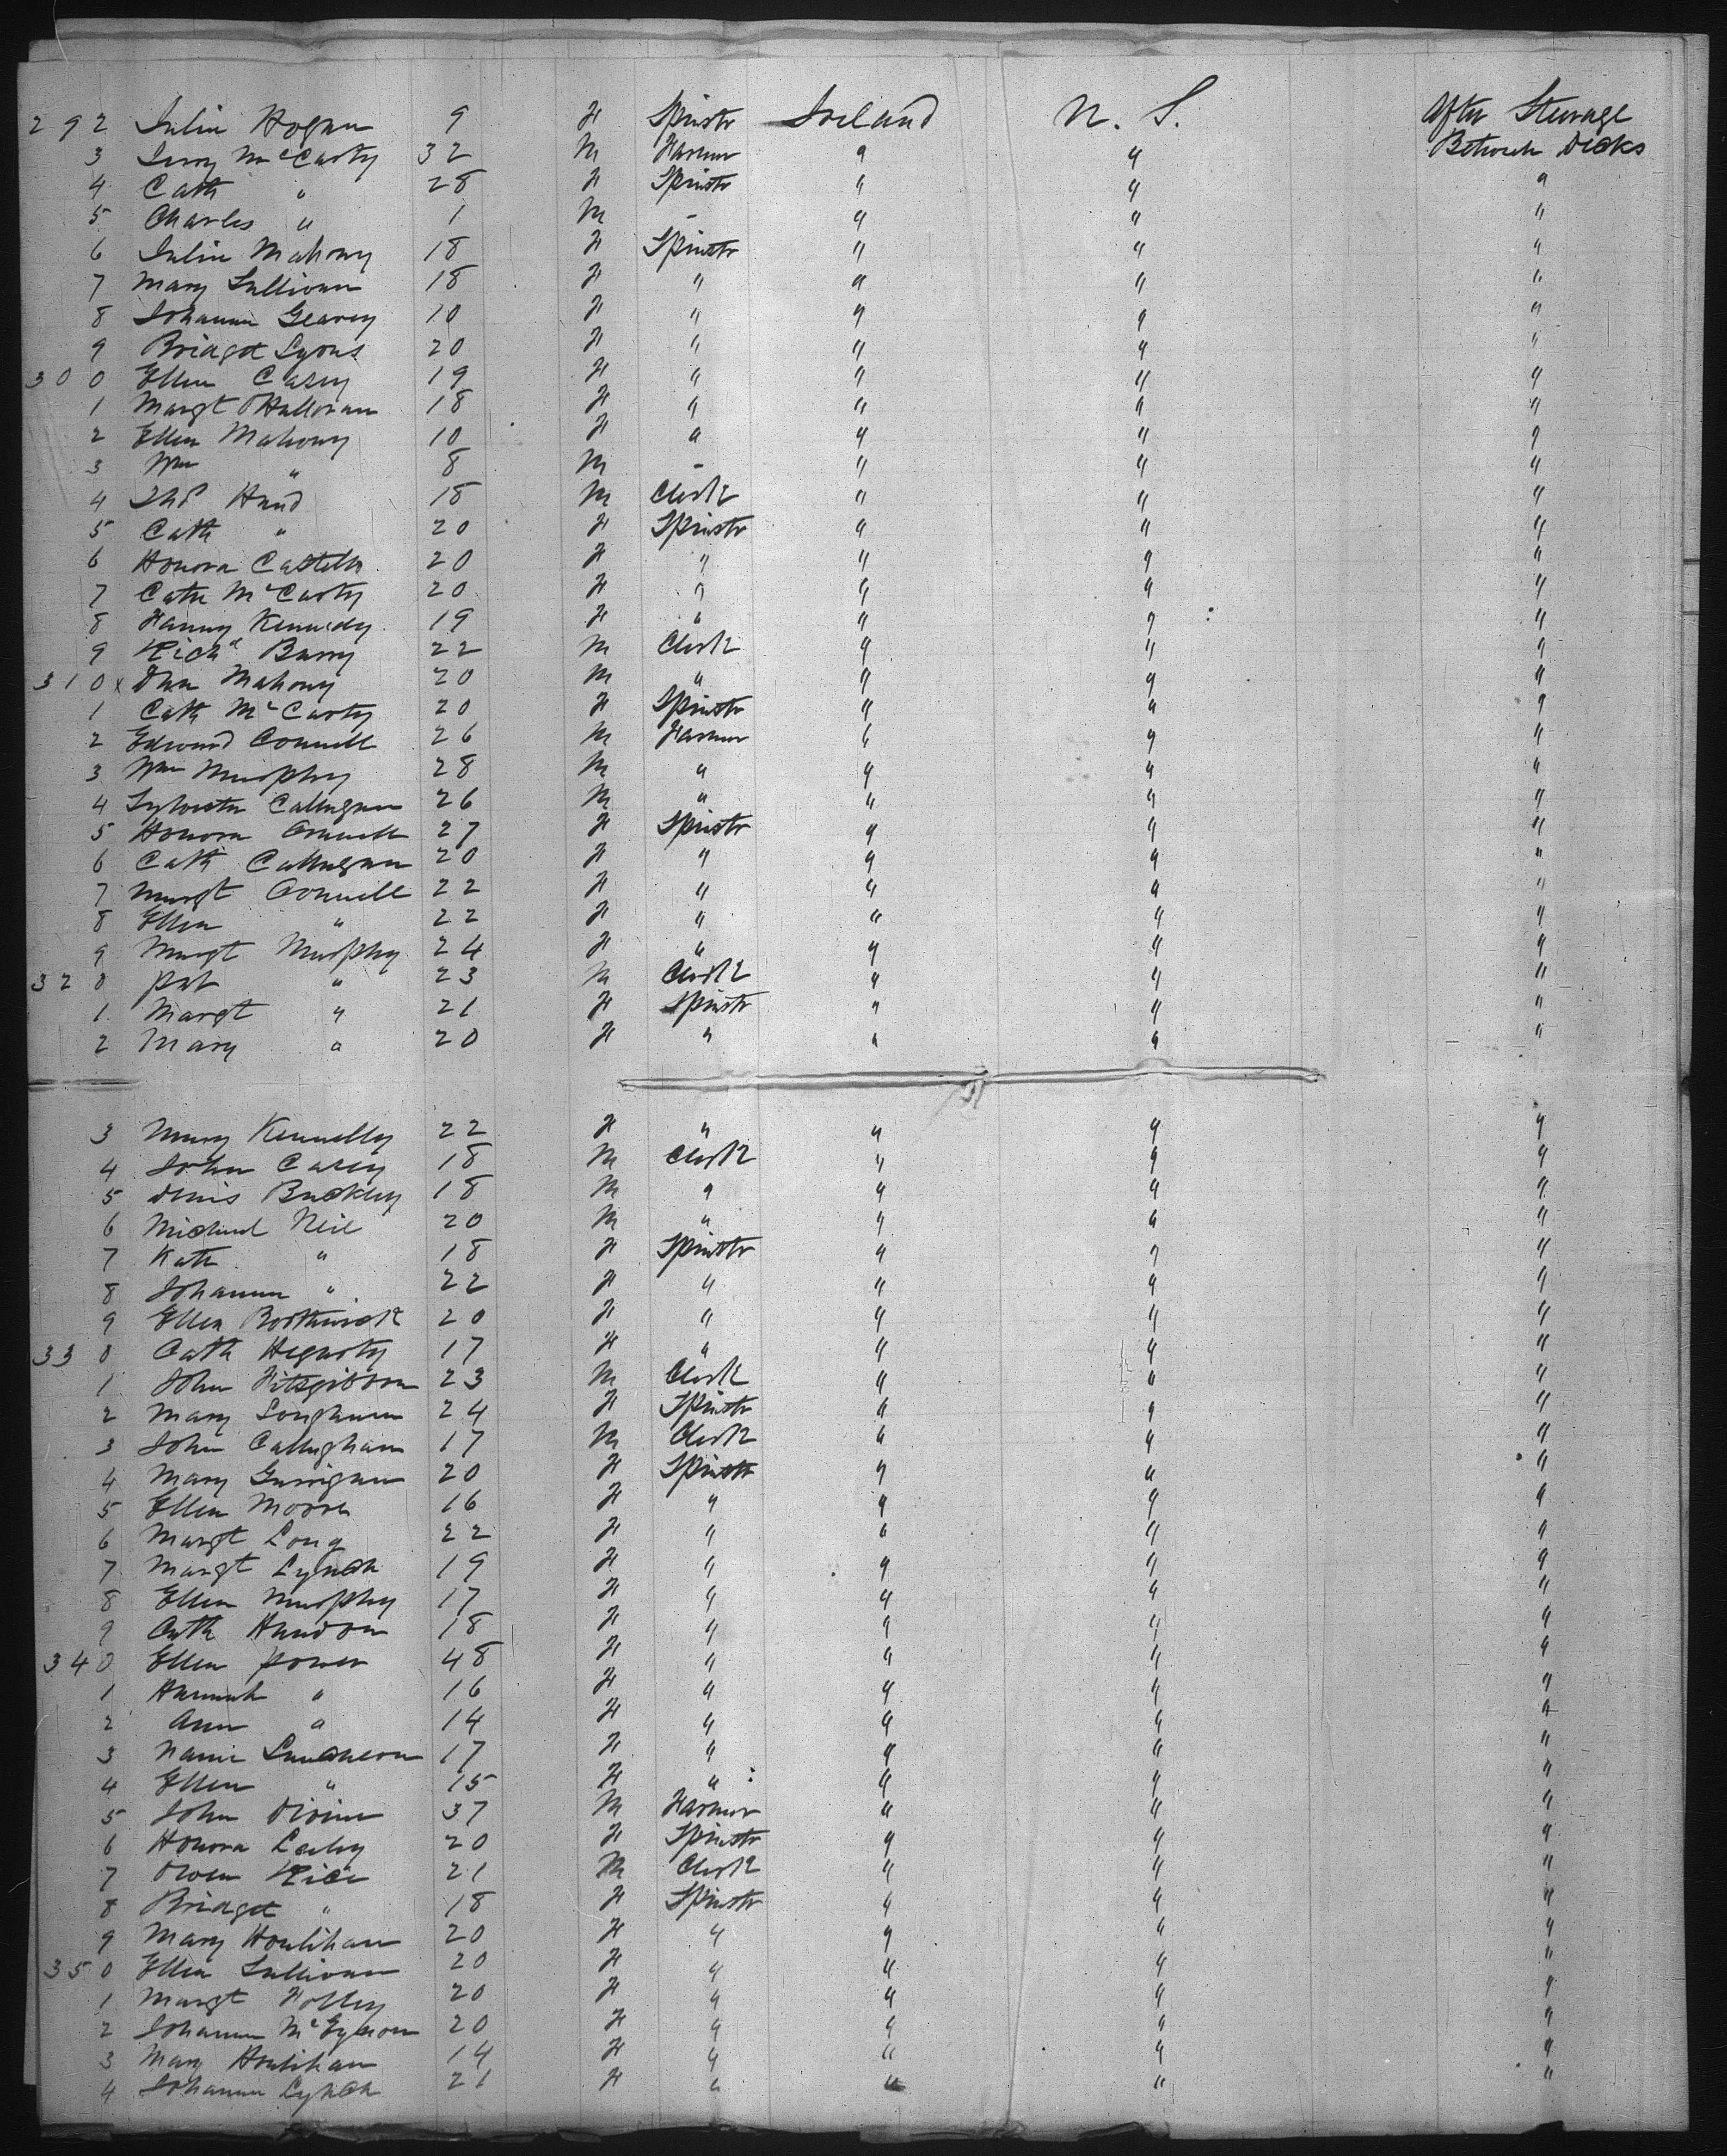 292 Julia Hogan 9 F Spinstr Ireland U. S. After Steerage
3 Jerry McCarty 32 M Farmer " " Between Decks
4 Cath " 28 F Spinstr " " "
5 Charles " 1 M - " " "
6 Julia Mahony 18 F Spinstr " " "
7 Mary Sullivan 18 F " " " "
8 Johanna Gearey 10 F " " " "
9 Bridget Lyons 20 F " " " "
300 Ellen Casey 19 F " " " "
1 Margt OHalloran 18 F " " " "
2 Ellen Mahony 10 F " " " "
3 Wm " 8 M - " " "
4 Thos Hand 18 M Clerk " " "
5 Cath " 20 F Spinstr " " "
6 Honora Castello 20 F " " " "
7 Cath McCarty 20 F " " " "
8 Fanny Kennedy 19 F " " " "
9 Richd Barry 22 M Clerk " " "
310 x Dan Mahony 20 M " " " "
1 Cath McCarty 20 F Spinstr " " "
2 Edward Connell 26 M Farmer " " "
3 Wm Murphy 28 M " " " "
4 Sylvester Callagan 26 M " " " "
5 Honora Connell 27 F Spinstr " " "
6 Cath Callagan 20 F " " " "
7 Margt Connell 22 F " " " "
8 Ellen " 22 F " " " "
9 Margt Murphy 24 F " " " "
320 Pat " 23 M Clerk " " "
1 Margt " 21 F Spinstr " " "
2 Mary " 20 F " " " "
3 Mary Kennelly 22 F " " " "
4 John Casey 18 M Clerk " " "
5 Denis Buckley 18 M " " " "
6 Michael Neil 20 M " " " "
7 Kate " 18 F Spinstr " " "
8 Johanna " 22 F " " " "
9 Ellen Borthwick 20 F " " " "
330 Cath Hegarty 17 F " " " "
1 John Fitzgibbon 23 M Clerk " " "
2 Mary Longhman 24 F Spinstr " " "
3 John Callaghan 17 M Clerk " " "
4 Mary Garrigan 20 F Spinstr " " "
5 Ellen Moore 16 F " " " "
6 Margt Long 22 F " " " "
7 Margt Lynch 19 F " " " "
8 Ellen Murphy 17 F " " " "
9 Cath Handon 18 F " " " "
340 Ellen Power 48 F " " " "
1 Hannah " 16 F " " " "
2 Ann " 14 F " " " "
3 Luncheon 17 F " " " "
4 Ellen " 15 F " " " "
5 John Divine 37 M Farmer " " "
6 Honora Leahy 20 F Spinstr " " "
7 Owen Rice 21 M Clerk " " "
8 Bridget " 18 F Spinstr " " "
9 Mary Houlihan 20 F " " " "
350 Ellen Sullivan 20 F " " " "
1 Margt Folley 20 F " " " "
2 Johanna 20 F " " " "
3 Mary Houlihan 14 F " " " "
4 Johanna Lynch 21 F " " " "